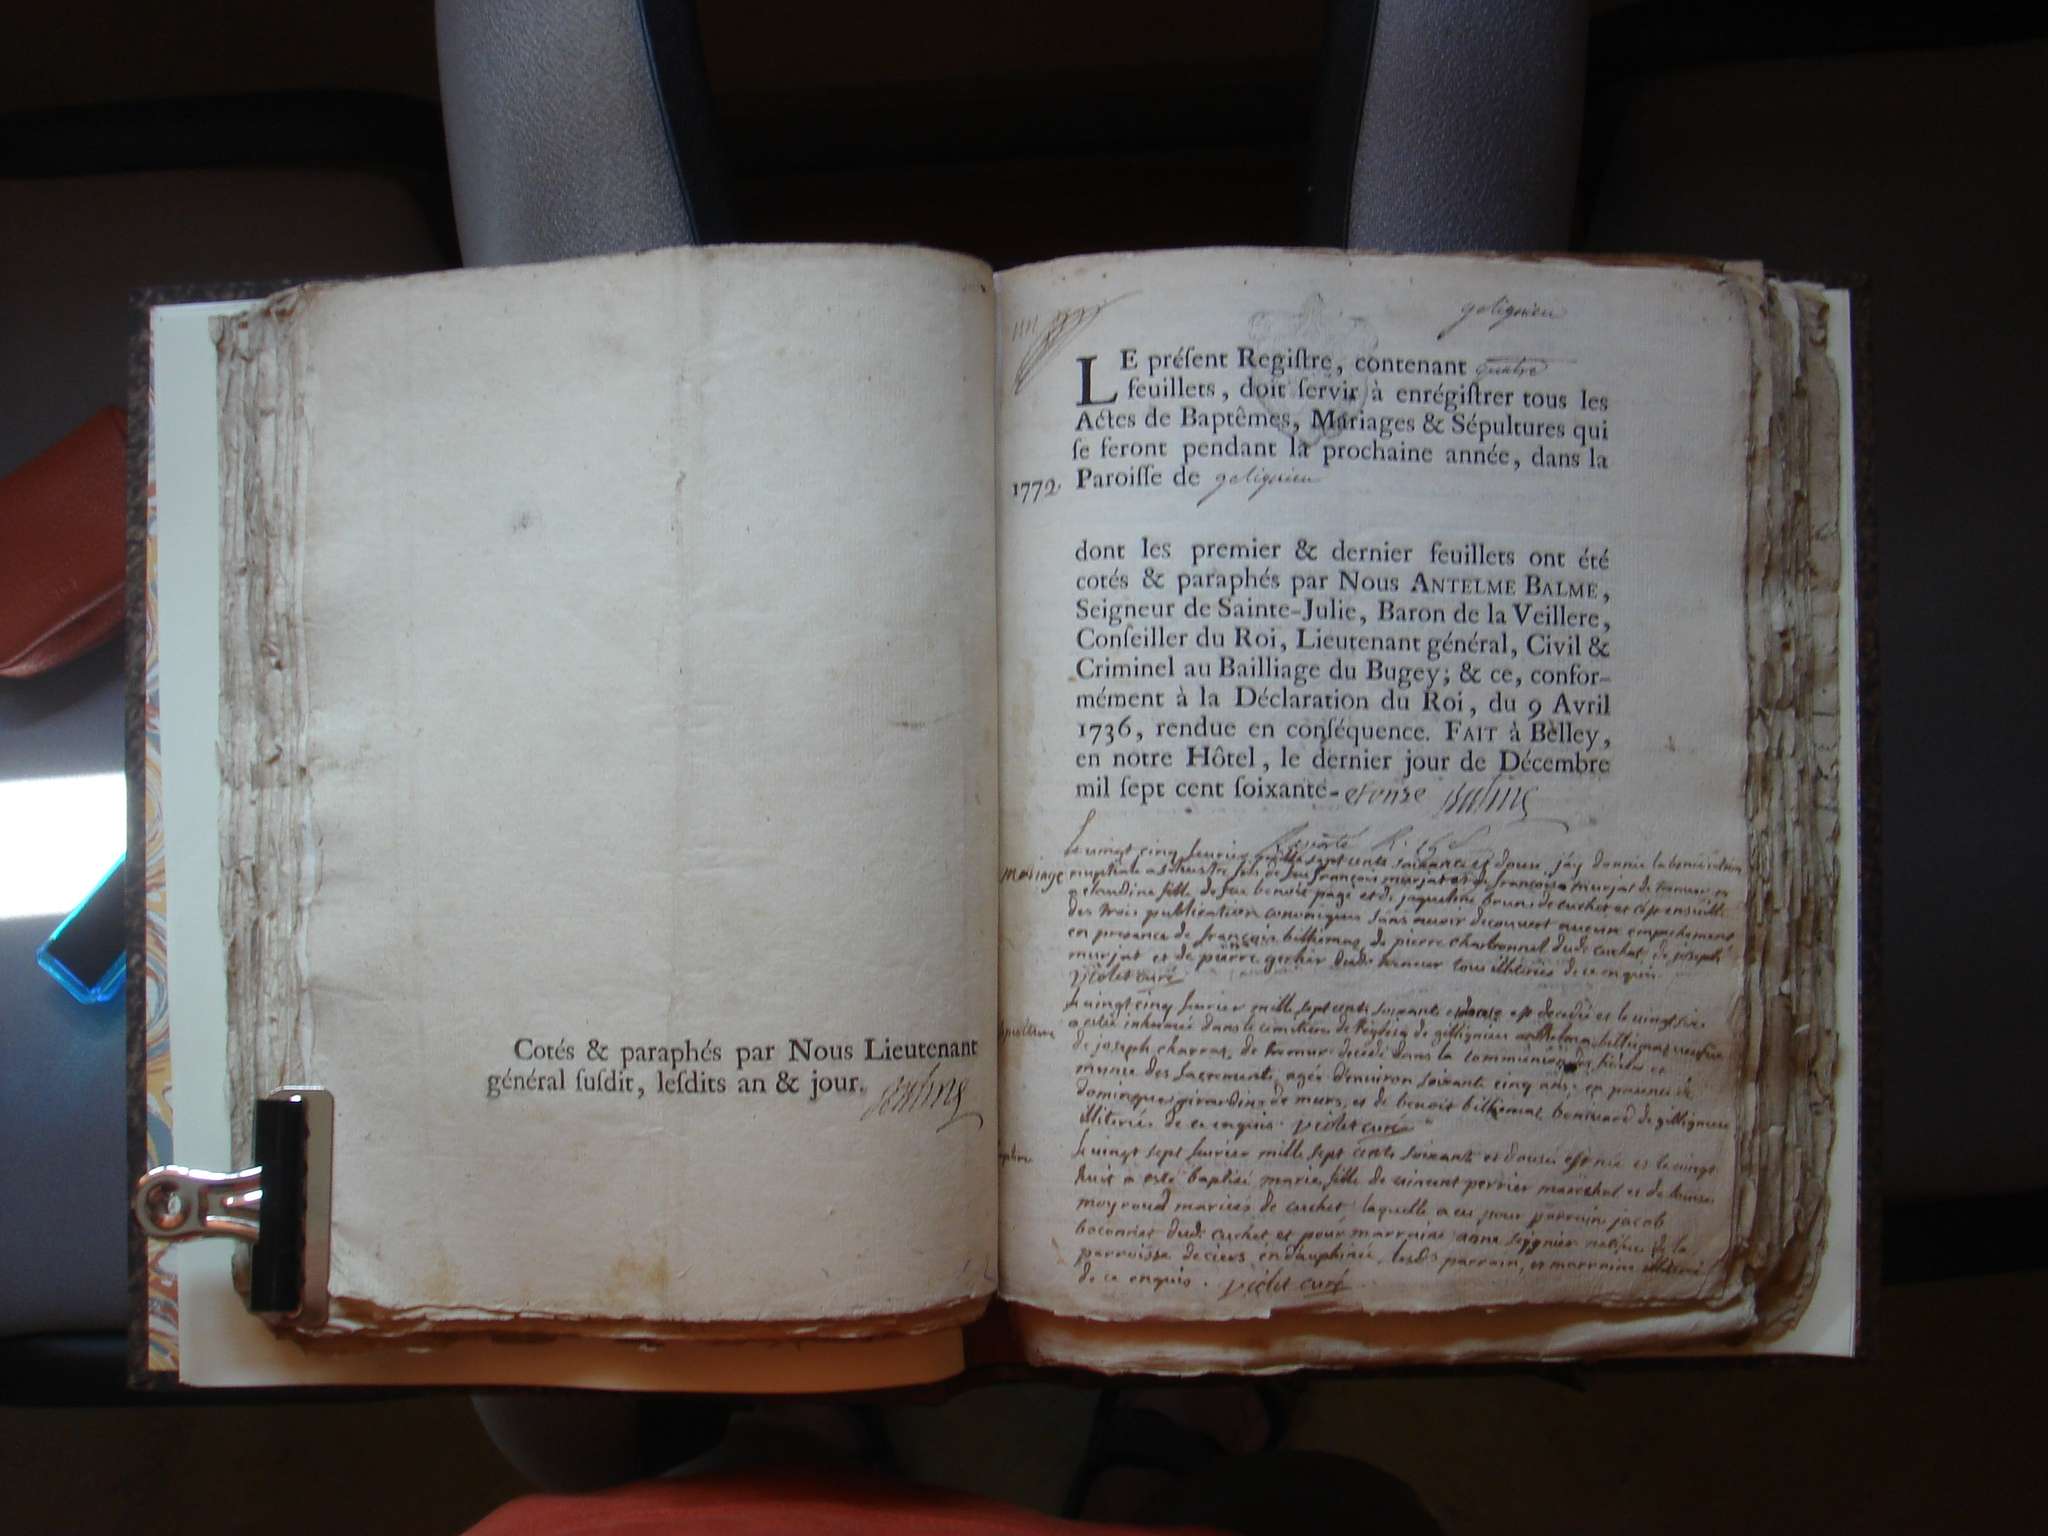 Cotés & paraphés par Nous Lieutenant
général ſuſdit, leſdits an & jour. Balme
gelignieu
LE préſent Regiſtre, contenant quatre
feuillets, doit ſervir à enrégiſtrer tous les
Actes de Baptêmes, Mariages & Sépultures qui
ſe feront pendant la prochaine année, dans la
1772 Paroiſſe de gelignieu
dont les premier & dernier feuillets ont été
cotés & paraphés par Nous ANTELME BALME,
Seigneur de Sainte-Julie, Baron de la Veillere,
Conſeiller du Roi, Lieutenant général, Civil &
Criminel au Bailliage du Bugey; & ce, confor-
mément à la Déclaration du Roi, du 9 Avril
1736, rendue en conſéquence. FAIT à Belley,
en notre Hôtel, le dernier jour de Décembre
mil ſept cent ſoixante- et onze Balme
Le vingt cinq fevrier mille sept cents soixante et douse j'ay donnée la benediction
mariage nuptiale a fils de feu françois murjat et de françoise murjat de
a claudine fille de feu benoit page et de jaqueline brun de cuchet et ce ensuitte
des trois publications canoniques sans avoir decouvert aucun empechement
en presence de françois billiemas, de pierre charbonnel dud. cuchet, de joseph
murjat et de pierre dud. tous illiterés de ce enquis
violet curé
Le vingt cinq fevrier mille sept cents soixante et douse est decedée et le vingt six
a estée inhumée dans le cimetiere de l'eglise de gelignieu anthelma billiemas veufve
de joseph charvas, de decedée dans la communion des fideles et
munie des sacrements, agée d'environ soixante cinq ans, en presence de
dominique girardin de murs, et de benoit billiemas de gelignieu
illiterés de ce enquis. violet curé
Le vingt sept fevrier mille sept cents soixante et douse est née et le vingt
huit a esté baptisé marie fille de vincent perrier marechal et de louise
moyroud mariés de cuchet laquelle a eu pour parrain jacob
boconnet dud. cuchet et pour marraine anne seignier native de la
parroisse de ciers en dauphinée, lesds parrain, et marraine illiteré
de ce enquis. violet curé